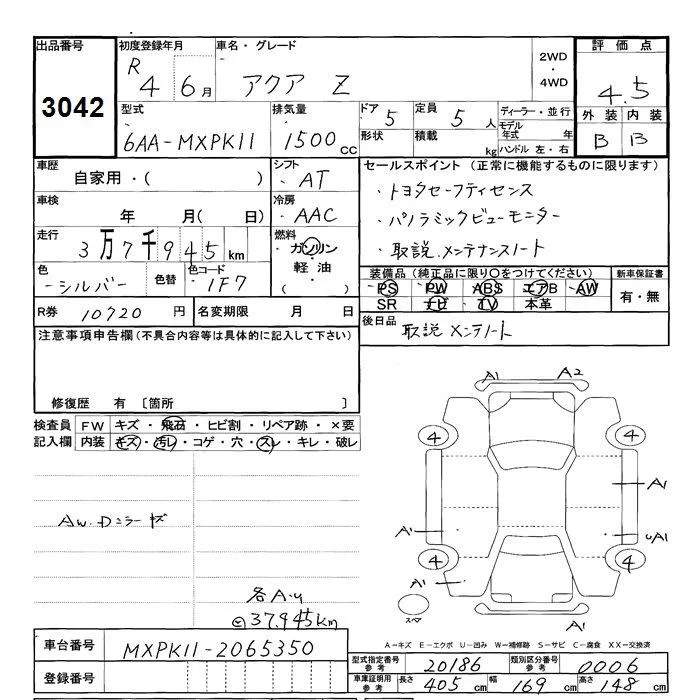 出品番号 初度登録年月 車名・グレード 評価点
3042 R 4 6月 アクア Z 2WD・4WD 4.5
型式 排気量 ドア 5 定員 5人 ディーラー・並行 外装 内装
6AA-MXPK11 1500cc 形状 積載 kg モデル年式 年 B B
ハンドル 左・右
車歴 シフト セールスポイント (正常に機能するものに限ります)
自家用・( ) ・AT ・トヨタセーフティセンス
車検 冷房 ・パノラミックビューモニター
年 月( 日) ・AAC
走行 燃料 ・取説.メンテナンスノート
3万7千945km ・ガソリン
・軽油・ 装備品 (純正品に限り○をつけてください) 新車保証書
色 色替 色コード PS PW ABS エアB AW 有・無
シルバー 1F7 SR ナビ TV 本革
R券 10720円 名変期限 月 日 後日品
取説 メンテノート
注意事項申告欄(不具合内容等は具体的に記入して下さい)
修復歴 有 〔箇所 〕
検査員 FW キズ・飛石・ヒビ割・リペア跡・×要
記入欄 内装 キズ・汚レ・コゲ・穴・スレ・キレ・破レ
A1 A2
4 4
A1
AW.Dミラーキズ
A1 UA1
4 4
A1
各A.U
37.945km
スペア
A1
A-キズ E-エクボ U-凹み W-補修跡 S-サビ C-腐食 XX-交換済
車台番号 MXPK11-2065350
型式指定番号 参考 20186 類別区分番号 参考 0006
登録番号 車庫証明用 参考 長さ 405cm 幅 169cm 高さ 148cm